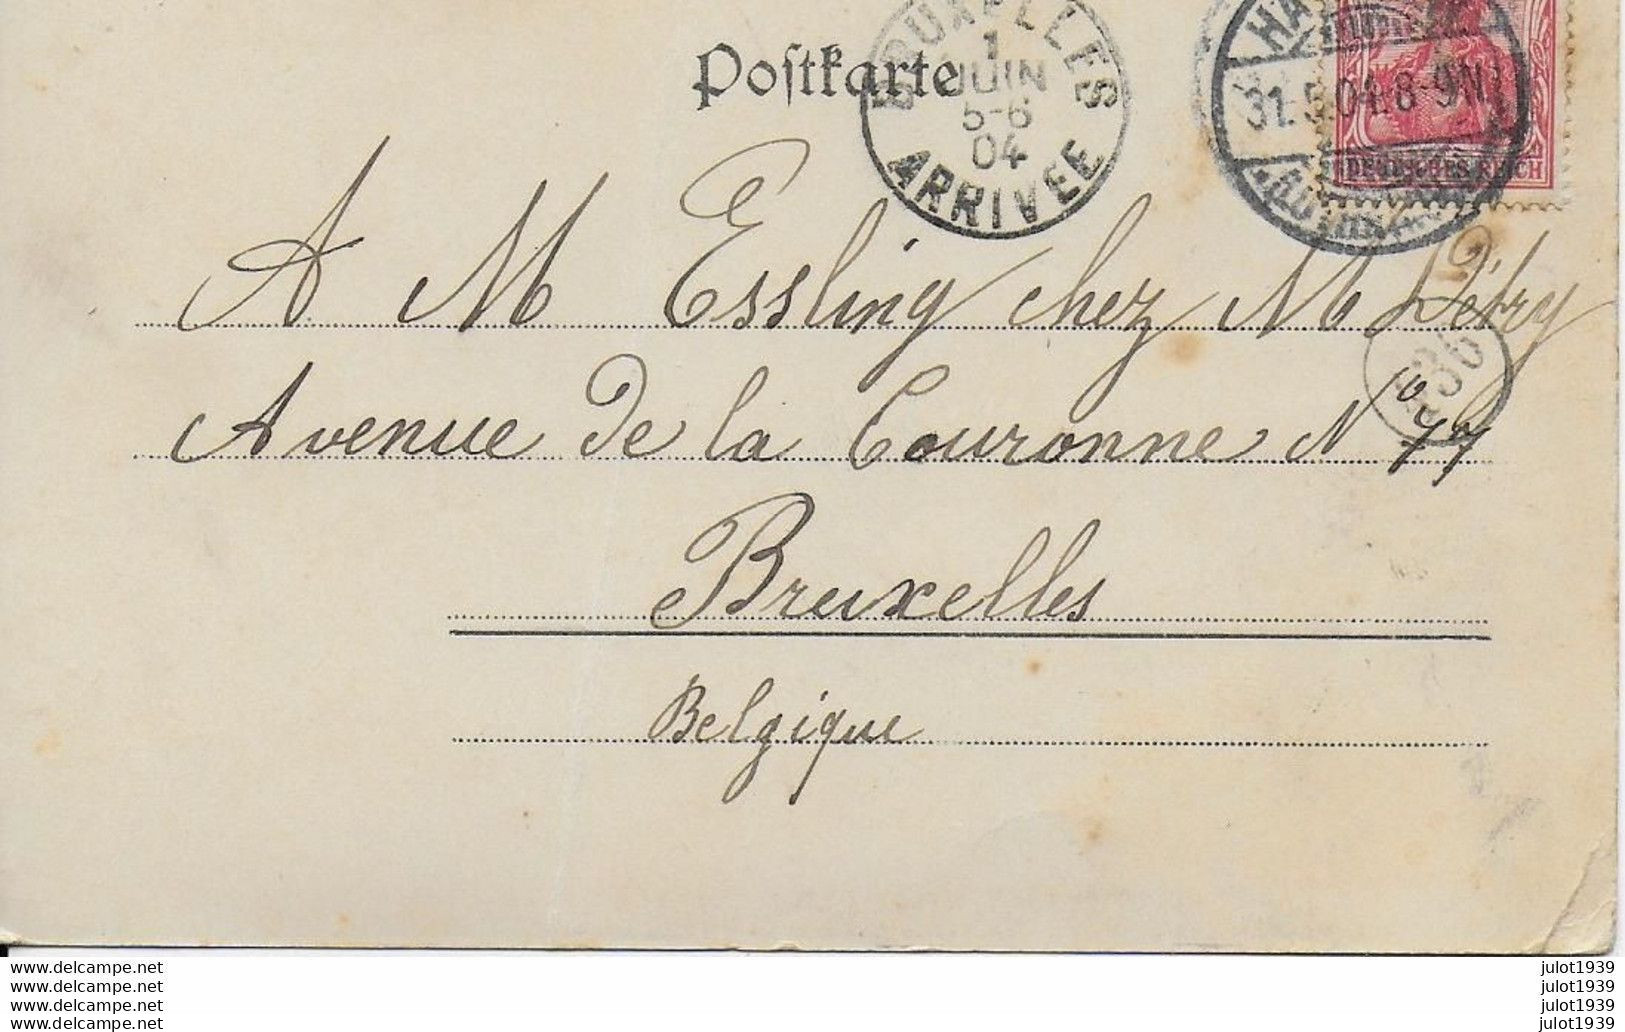 Postkarte
BRUXELLES
1
JUIN
5-6
04
ARRIVEE
31.5.04.8-9N
DEUTSCHES REICH
A M Essling chez M Détry
36
Avenue de la Couronne N 77
Bruxelles
Belgique
www.delcampe.net julot1939
www.delcampe.net julot1939
www.delcampe.net julot1939
www.delcampe.net julot1939